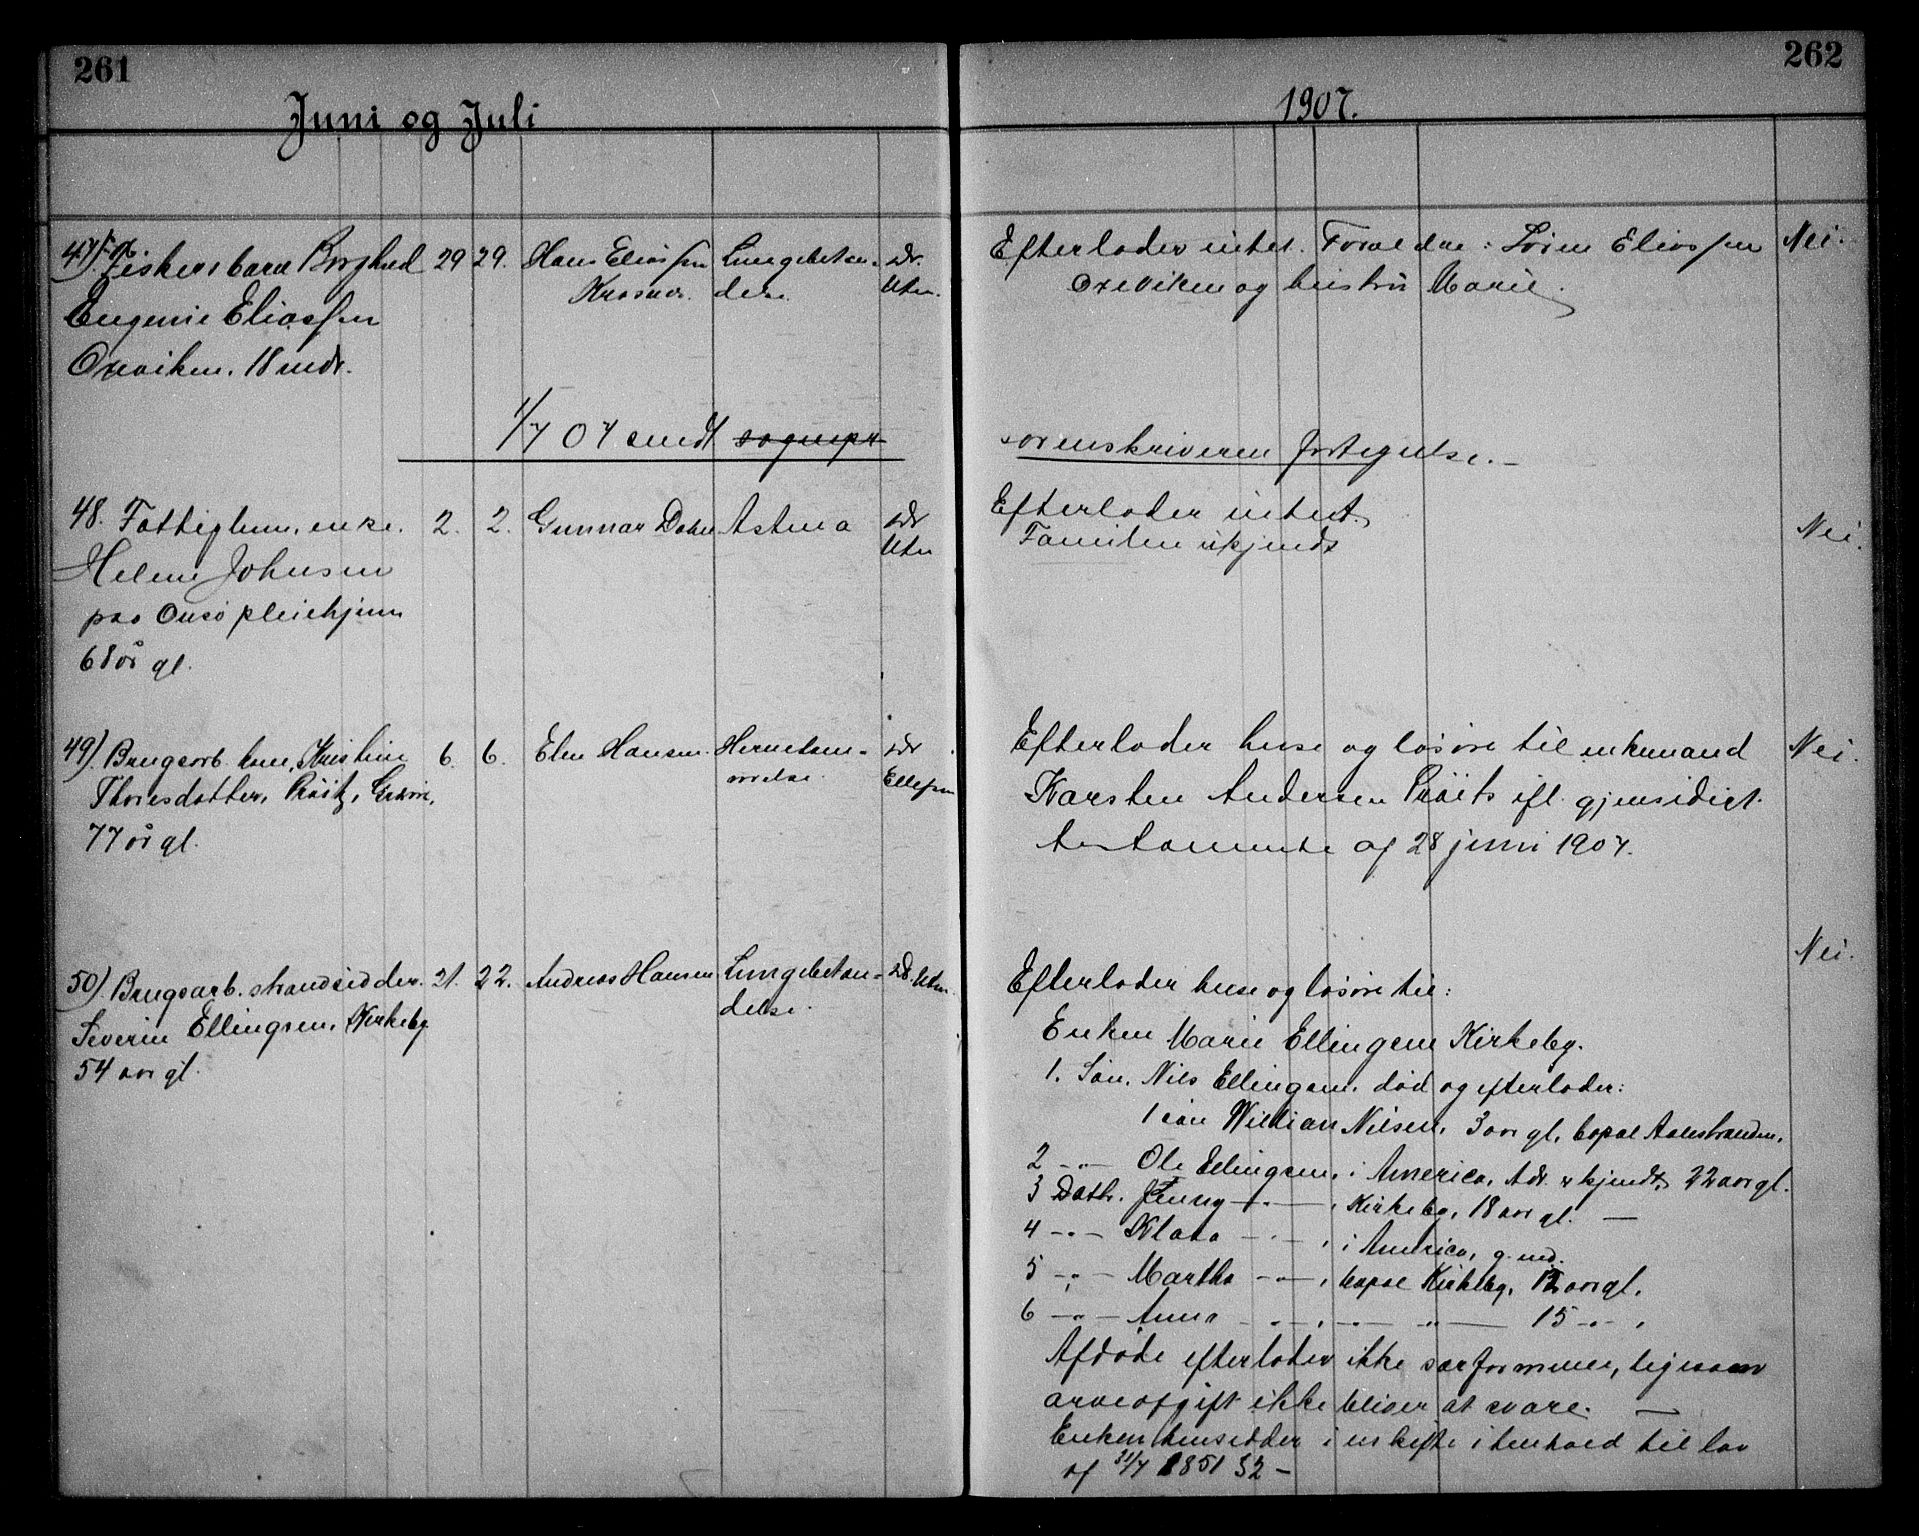 261
Juni og Juli
47) Fiskersbarn Borghed 29 29. Hans Eliassen Lungebetæn- dr.
Krosnes. delse. Utne.
Eugenie Eliassen
Oxeviken. 18 mdr.
1/7 07 sendt sognepr
48. Fattiglem, enke. 2. 2. Gunnar Dahl Astma dr
Helene Johnsen Utne
paa Onsø pleiehjem
68 år gl.
49) Brugsarb. kone, Kristine 6. 6. Elen Hansen. Hernetam- dr
Thoresdatter, Pröitz, Ellefsen
77 år gl.
50) Brugsarb. strandsidder. 21. 22. Andreas Hansen Lungebetæn- dr. Utne.
Severin Ellingsen, Kirkeby delse.
54 aar gl.
262
1907.
Efterlader intet. Forældre: Sören Eliassen Nei.
Oxeviken og hustru Marie.
sorenskriveren fortegnelse.-
Efterlader intet. Nei.
Familien ukjendt
Efterlader huse og løsøre til enkemand Nei.
Karsten Andersen Pröits ifl. gjensidigt
testamente af 28 juni 1907.
Nei.
Efterlader huse og løsøre til:
Enken Marie Ellingsen Kirkeby.
1. Søn. Nils Ellingsen, død og efterlader:
1 søn William Nilsen, 3 aar gl, bopæl Aalestranden.
2 -"- Ole Ellingsen, i America, Adr. ukjendt, 22 aar gl.
3 Dattr. Jenny -"- , Kirkeby, 18 aar gl. —
4 -"- Klara -"- , i America, g. med.
5 -"- Martha -"- , bopæl Kirkeby, 12 aar gl.
6 -"- Anna -"- , -"- 15 -"- .
Afdøde efterlader ikke særformue, ligesom
arveafgift ikke bliver at svare. —
Enken hensidder i uskifte i henhold til lov
af 31/7 1851 §2 -